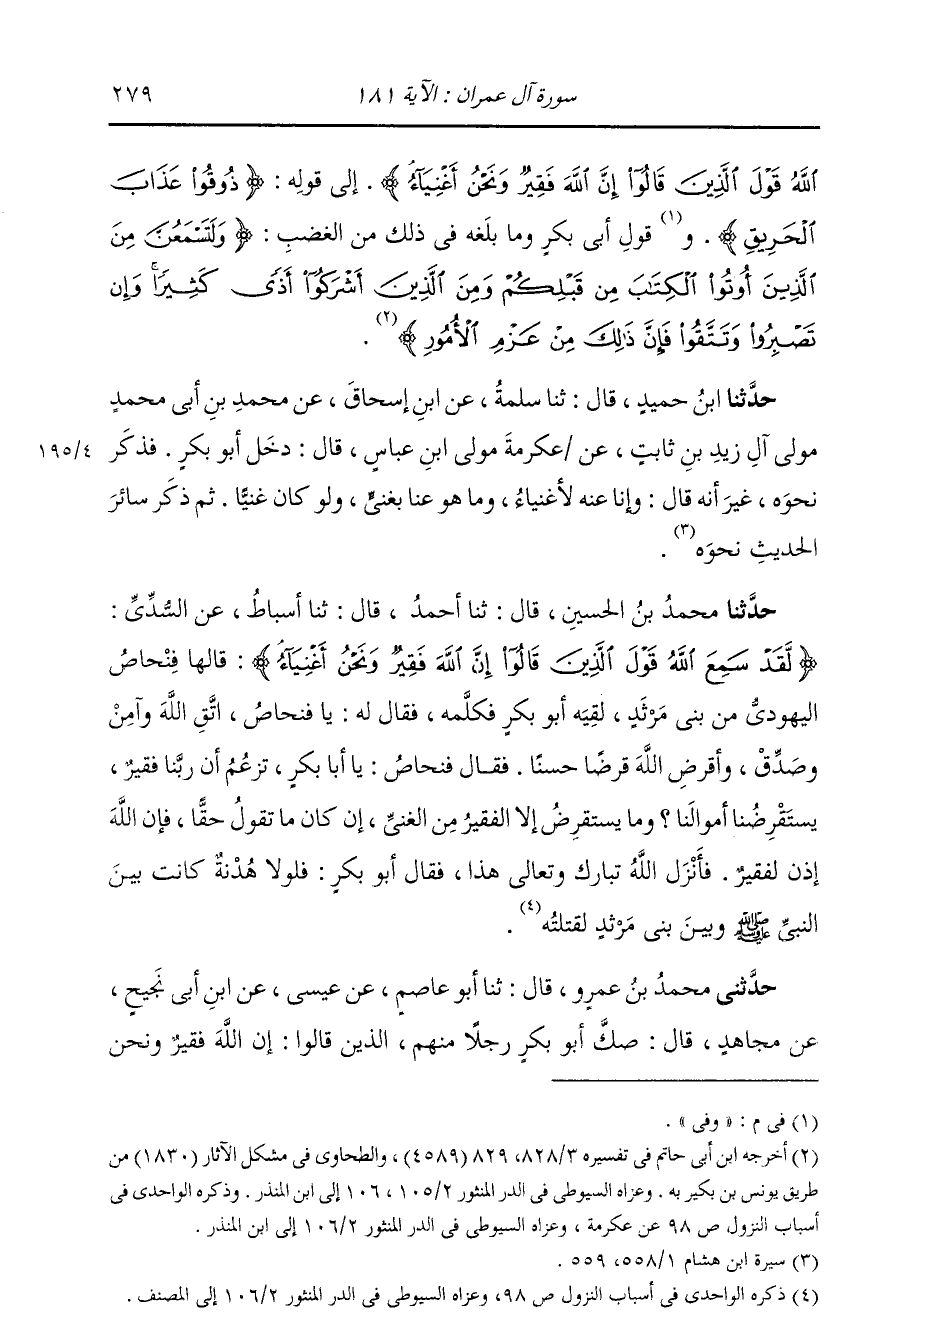 سورة آل عمران : الآية ١٨١ ٢٧٩
ٱللَّهُ قَوْلَ ٱلَّذِينَ قَالُوٓا۟ إِنَّ ٱللَّهَ فَقِيرٌ وَنَحْنُ أَغْنِيَآءُ ﴾ . إلى قولِه : ﴿ ذُوقُوا۟ عَذَابَ
ٱلْحَرِيقِ ﴾ . و(١) قولِ أبى بكرٍ وما بلَغه فى ذلك من الغضبِ : ﴿ وَلَتَسْمَعُنَّ مِنَ
ٱلَّذِينَ أُوتُوا۟ ٱلْكِتَٰبَ مِن قَبْلِكُمْ وَمِنَ ٱلَّذِينَ أَشْرَكُوٓا۟ أَذًى كَثِيرًا ۚ وَإِن
تَصْبِرُوا۟ وَتَتَّقُوا۟ فَإِنَّ ذَٰلِكَ مِنْ عَزْمِ ٱلْأُمُورِ ﴾(٢) .
حدَّثنا ابنُ حميدٍ ، قال : ثنا سلمةُ ، عن ابنِ إسحاقَ ، عن محمدِ بنِ أبى محمدٍ
مولى آلِ زيدِ بنِ ثابتٍ ، عن /عكرمةَ مولى ابنِ عباسٍ ، قال : دخَل أبو بكرٍ . فذكَر ١٩٥/٤
نحوَه ، غيرَ أنه قال : وإنا عنه لأغنياءُ ، وما هو عنا بغنىٍّ ، ولو كان غنيًّا . ثم ذكَر سائرَ
الحديثِ نحوَه(٣) .
حدَّثنا محمدُ بنُ الحسينِ ، قال : ثنا أحمدُ ، قال : ثنا أسباطُ ، عن السُّدِّىِّ :
﴿ لَّقَدْ سَمِعَ ٱللَّهُ قَوْلَ ٱلَّذِينَ قَالُوٓا۟ إِنَّ ٱللَّهَ فَقِيرٌ وَنَحْنُ أَغْنِيَآءُ ﴾ : قالها فِنْحاصُ
اليهودىُّ من بنى مَرْثَدٍ ، لقِيَه أبو بكرٍ فكلَّمه ، فقال له : يا فنحاصُ ، اتَّقِ اللَّهَ وآمِنْ
وصَدِّقْ ، وأقرضِ اللَّهَ قرضًا حسنًا . فقال فنحاصُ : يا أبا بكرٍ ، تزعُمُ أن ربَّنا فقيرٌ ،
يستَقْرِضُنا أموالَنا ؟ وما يستقرِضُ إلا الفقيرُ مِن الغنىِّ ، إن كان ما تقولُ حقًّا ، فإن اللَّهَ
إذن لفقيرٌ . فأَنْزَل اللَّهُ تبارك وتعالى هذا ، فقال أبو بكرٍ : فلولا هُدْنةٌ كانت بينَ
النبىِّ ﷺ وبينَ بنى مَرْثدٍ لقتلتُه(٤) .
حدَّثنى محمدُ بنُ عمرٍو ، قال : ثنا أبو عاصمٍ ، عن عيسى ، عن ابنِ أبى نَجيحٍ ،
عن مجاهدٍ ، قال : صكَّ أبو بكرٍ رجلًا منهم ، الذين قالوا : إن اللَّهَ فقيرٌ ونحن
(١) فى م : « وفى » .
(٢) أخرجه ابن أبى حاتم فى تفسيره ٨٢٨/٣، ٨٢٩ (٤٥٨٩) ، والطحاوى فى مشكل الآثار (١٨٣٠) من
طريق يونس بن بكير به . وعزاه السيوطى فى الدر المنثور ١٠٥/٢ ، ١٠٦ إلى ابن المنذر . وذكره الواحدى فى
أسباب النزول ص ٩٨ عن عكرمة ، وعزاه السيوطى فى الدر المنثور ١٠٦/٢ إلى ابن المنذر .
(٣) سيرة ابن هشام ٥٥٨/١، ٥٥٩ .
(٤) ذكره الواحدى فى أسباب النزول ص ٩٨، وعزاه السيوطى فى الدر المنثور ١٠٦/٢ إلى المصنف .